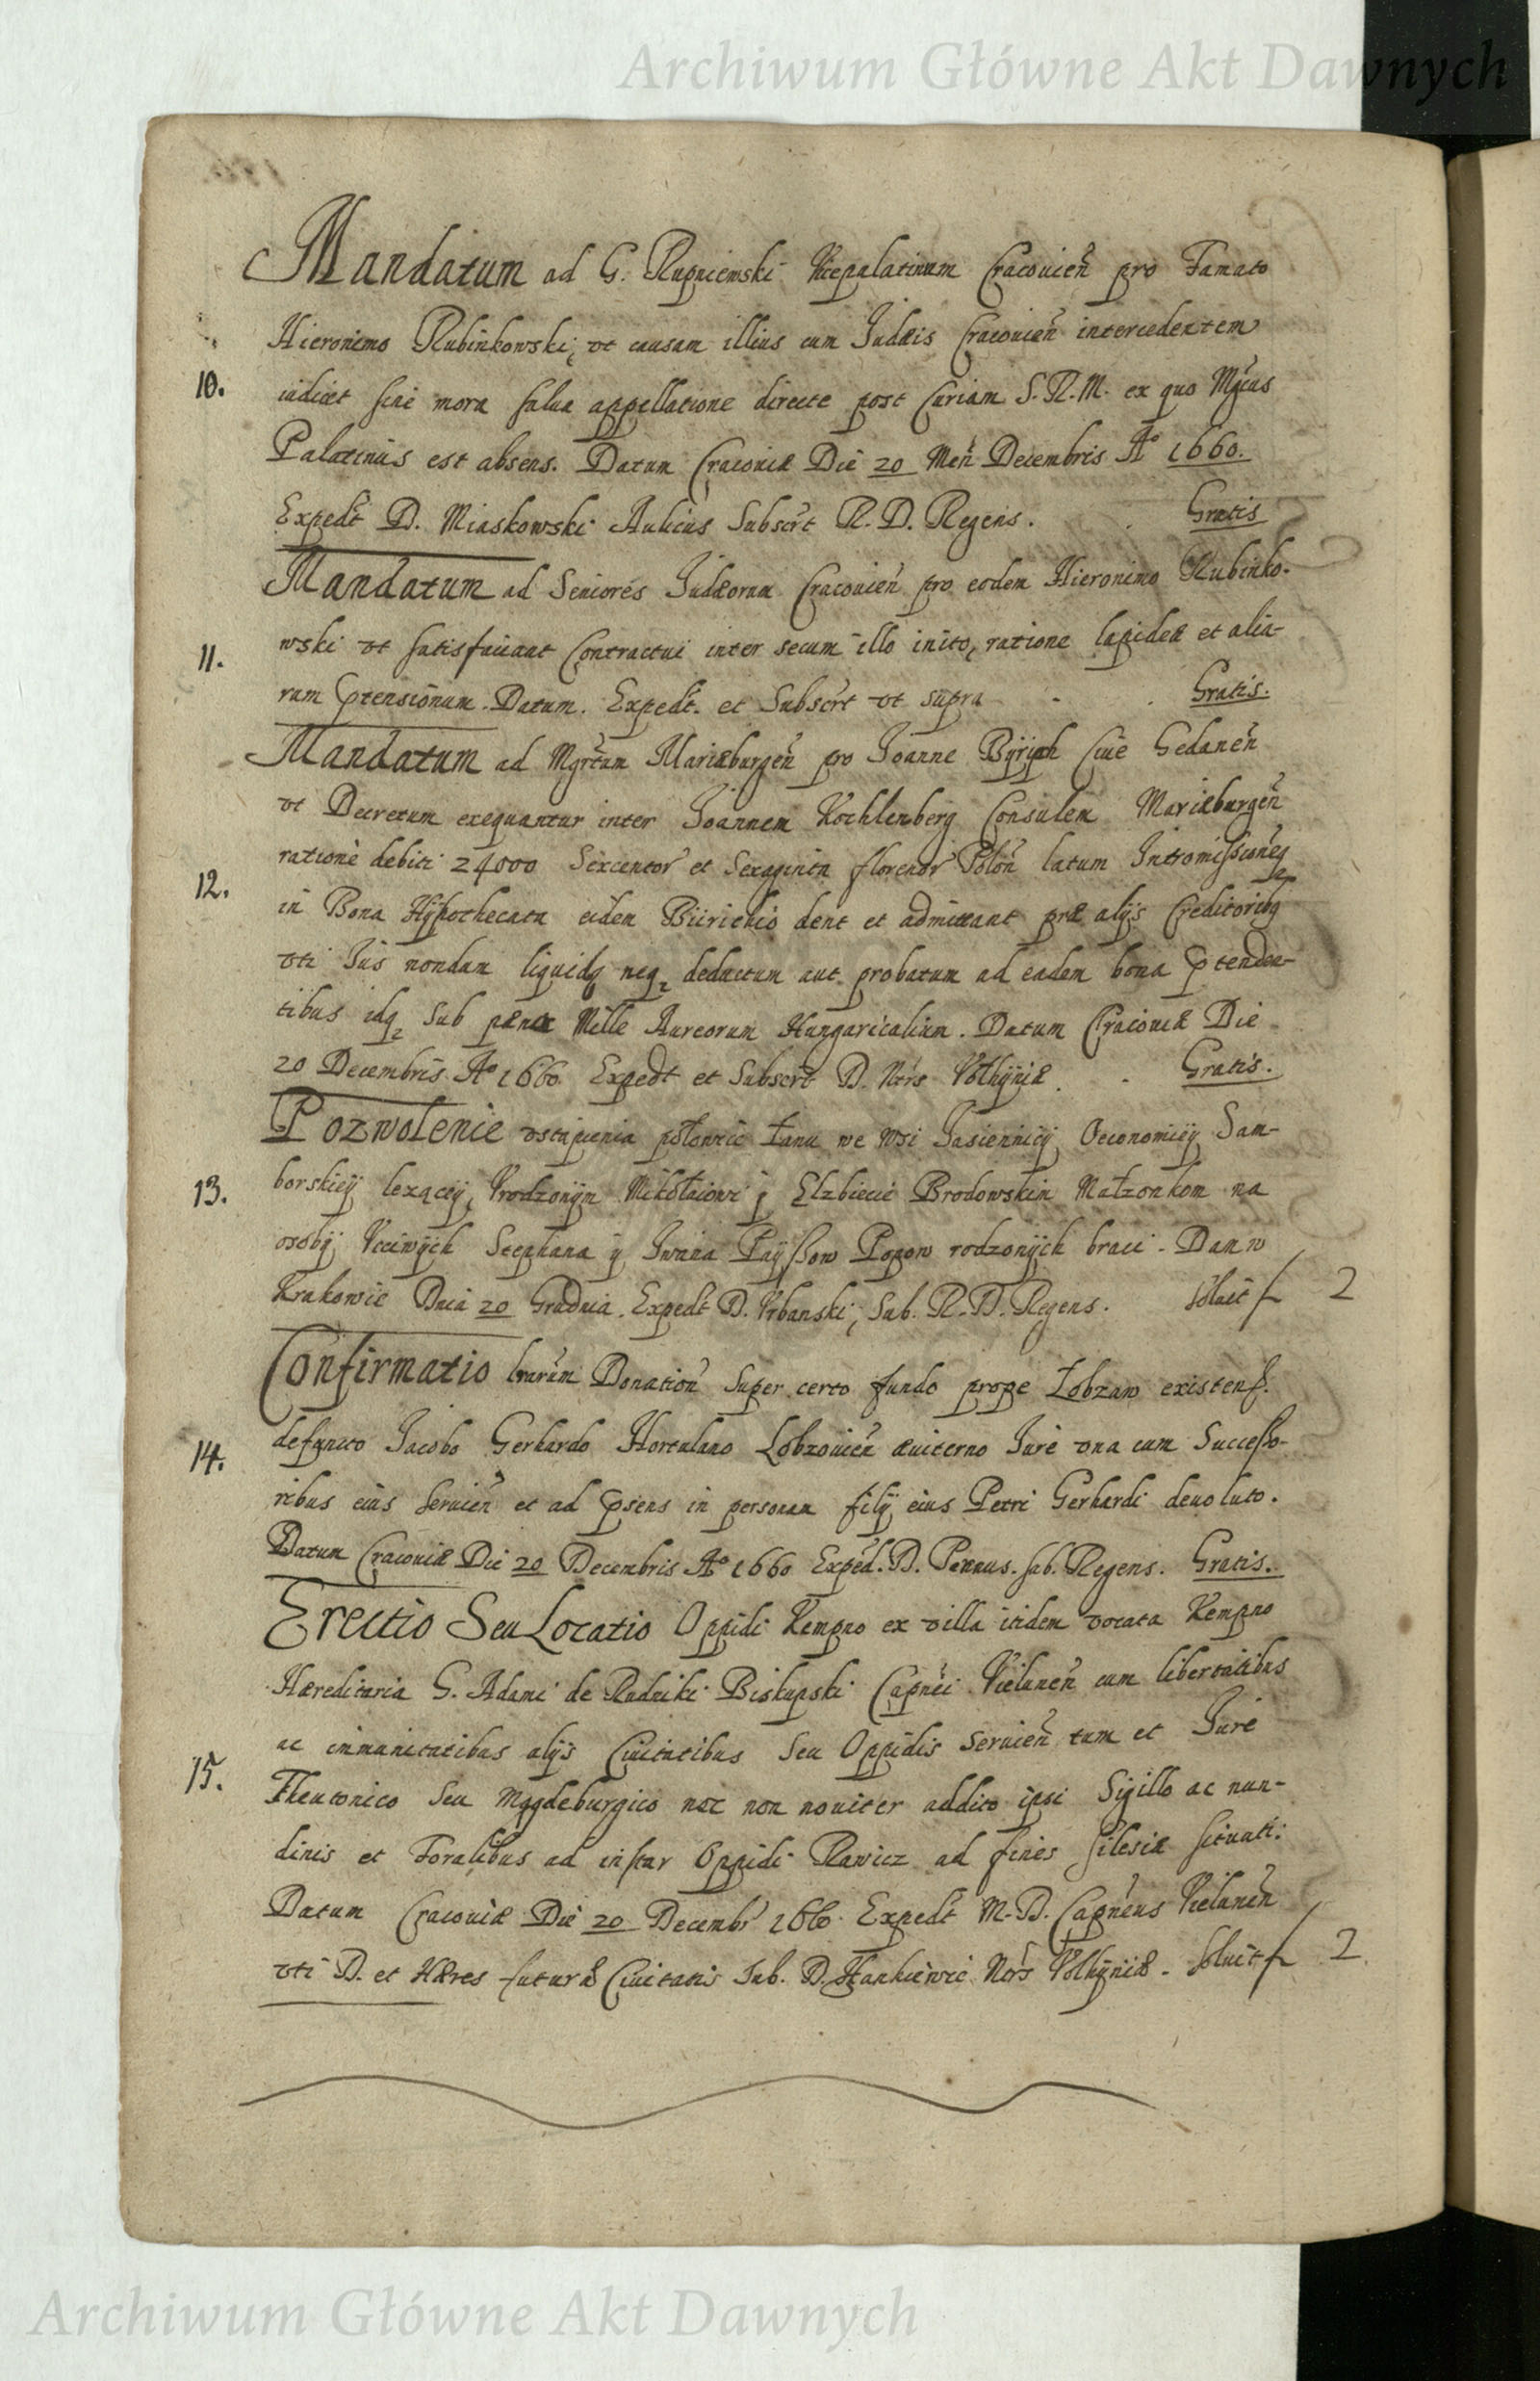 Archiwum Główne Akt Dawnych
Mandatum ad G. Rupniewski Vicepalatinum Cracouień pro Famato
Hieronimo Rubinkowski, vt causam illius cum Judæis Cracouień intercedentem
10. iudicet sine mora salua appellatione directe post Curiam S. R. M. ex quo Mgcus
Palatinus est absens. Datum Cracouiæ Die 20 Meń Decembris Aº 1660.
Expedt D. Miaskowski Aulicus Subscrt R. D. Regens. Gratis
Mandatum ad Seniores Judæorum Cracouień pro eodem Hieronimo Rubinko-
11. wski vt satisfaciant Contractui inter secum illo inito, ratione lapideæ et alia-
rum ptensionum. Datum. Expedt. et Subscrt vt supra Gratis.
Mandatum ad Mgrtum Mariæburgeń pro Joanne Byrych Ciue Gedaneń
vt Decretum exequantur inter Joannem Kochlenberg Consulem Mariæburgeń
12. ratione debiti 24000 Sexcentor et Sexaginta florenor Poloń latum Intromissioneq
in Bona Hypothecata eidem Biirichio dent et admittant præ alijs Creditoribq
vti Jus nondum liquidq neq deductum aut probatum ad eadem bona ptenden-
tibus idq sub pæna Mille Aureorum Hungaricalium. Datum Cracouiæ Die
20 Decembris Aº 1660. Expedt et Subscrt D. Ntrs Volhyniæ. Gratis.
Pozwolenie vstąpienia połowic Łanu we wsi Jasiennicy Oeconomiey Sam-
13. borskiey lezącey, Vrodzonym Mikołaiowi y Elzbiecie Brodowskim Małzonkom na
osoby Vcciwych Stephana y Iwana Payssow Popow rodzonych braci. Dan w
Krakowie Dnia 20 Grudnia. Expedt D. Vrbanski, Sub. R. D. Regens. soluit f 2
Confirmatio lrarum Donationi Super certo fundo prope Łobzaw existens.
14. defuncto Jacobo Gerhardo Hortulano Lobzouień æuiterno Jure vna cum Successo-
ribus eius seruień et ad psens in personam filij eius Petri Gerhardi deuoluto.
Datum Cracouiæ Die 20 Decembris Aº 1660 Exped. D. Pennus. sub. Regens. Gratis.
Erectio Seu Locatio Oppidi Kempno ex villa itidem vocata Kempno
Hæreditaria G. Adami de Rudniki Biskupski Capnei Vieluneń cum libertatibus
ac immunitatibus alijs Ciuitatibus seu Oppidis seruień tum et Jure
15. Theutonico seu Magdeburgico nec non nouiter addito ipsi Sigillo ac nun-
dinis et Foralibus ad instar Oppidi Rawicz ad fines Silesiæ situati.
Datum Cracouiæ Die 20 Decembr 1660. Expedt M. D. Capneus Vieluneń
vti D. et Hæres futuræ Ciuitatis Sub. D. Hankiewic Ntrs Volhyniæ. soluit f 2.
Archiwum Główne Akt Dawnych